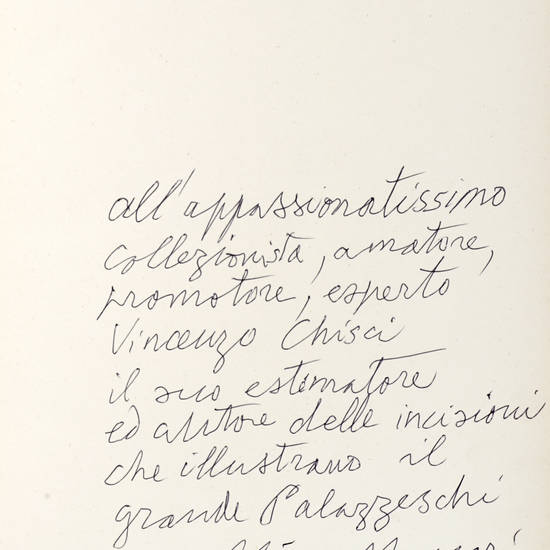 all'appassionatissimo
collezionista, amatore,
promotore, esperto
Vincenzo Chisci
il suo estimatore
ed autore delle incisioni
che illustrano il
grande Palazzeschi